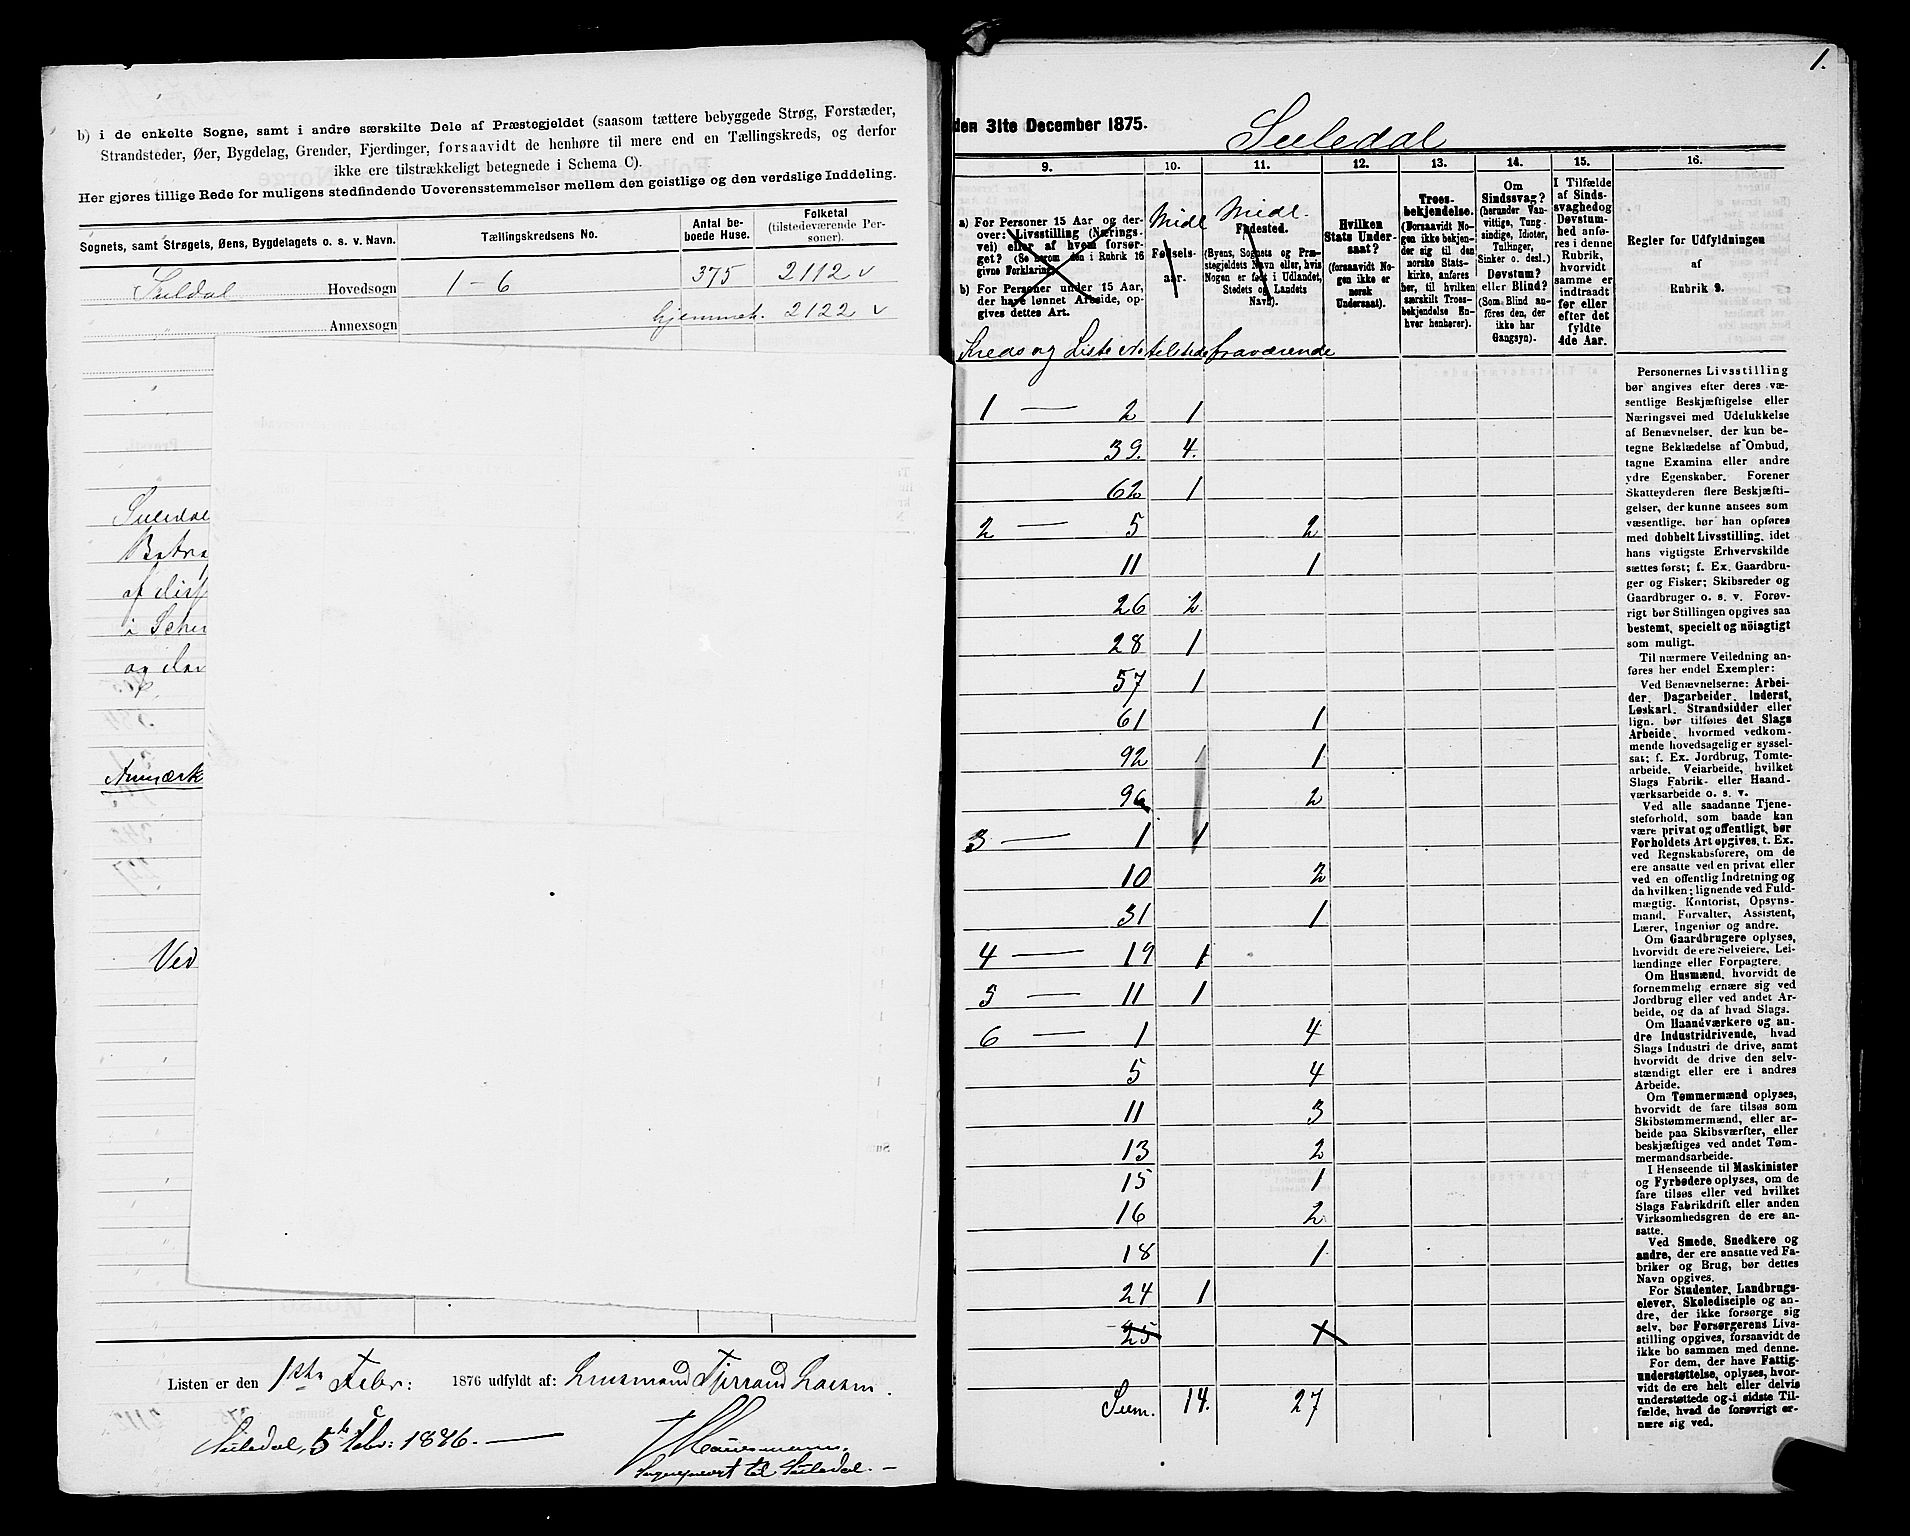 b) i de enkelte Sogne, samt i andre særskilte Dele af Præstegjeldet (saasom tættere bebyggede Strøg, Forstæder,
Strandsteder, Øer, Bygdelag, Grender, Fjerdinger, forsaavidt de henhøre til mere end en Tællingskreds, og derfor
ikke ere tilstrækkeligt betegnede i Schema C).
Her gjøres tillige Rede for muligens stedfindende Uoverensstemmelser mellem den geistlige og den verdslige Inddeling.
Sognets, samt Strøgets, Øens, Bygdelagets o. s. v. Navn.
Tællingskredsens No.
Antal be-
boede Huse.
Folketal
(tilstedeværende Per-
soner).
Suldal Hovedsogn 1 - 6 375 2112 v
" Annexsogn hjemmeh. 2122 v
Suledal
af
i
og
Anmærk
Ved
Listen er den 1ste Febr: 1876 udfyldt af: Lensmand Larsen.
Suledal, 5 Febr: 1876.
Sogneprest til Suledal.
1.
den 31te December 1875.
Suledal
9.
10.
11.
12.
13.
14.
15.
16.
a) For Personer 15 Aar og der-
over: Livsstilling (Nærings-
vei) eller af hvem forsør-
get? (Se herom den i Rubrik 16
givne Forklaring).
b) For Personer under 15 Aar,
der have lønnet Arbeide, op-
gives dettes Art.
Midl
Fødsels-
aar.
Midl.
Fødested.
(Byens, Sognets og Præ-
stegjeldets Navn eller, hvis
Nogen er født i Udlandet,
Stedets og Landets
Navn).
Hvilken
Stats Under-
saat?
(forsaavidt No-
gen ikke er
norsk
Undersaat).
Troes-
bekjendelse.
(Forsaavidt No-
gen ikke bekjen-
der sig til den
norske Stats-
kirke, anføres
her, til hvilken
særskilt Troes-
bekjendelse En-
hver henhører).
Om
Sindssvag?
(herunder Van-
vittige, Tung-
sindige, Idioter,
Tullinger,
Sinker o. desl.)
Døvstum?
eller Blind?
(Som Blind an-
føres den, der
ikke har
Gangsyn).
I Tilfælde
af Sinds-
svaghed og
Døvstum-
hed anfø-
res i denne
Rubrik,
hvorvidt
samme er
indtraadt
før eller
efter det
fyldte
4de Aar.
Regler for Udfyldningen
af
Rubrik 9.
Kreds og Liste No tilstede fraværende
1 — 2 1
39. 4.
62 1
2 — 5 2
11 1
26 2
28 1
57 1
61 1
92 1
96 2
3 — 1 1
10 2
31 1
4 — 19 1
5 — 11 1
6 — 1 4
5 4
11 3
13 2
15 1
16 2
18 1
24 1
25 1
Sum. 14. 27
Personernes Livsstilling
bør angives efter deres væ-
sentlige Beskjæftigelse eller
Næringsvei med Udelukkelse
af Benævnelser, der kun be-
tegne Beklædelse af Ombud,
tagne Examina eller andre
ydre Egenskaber. Forener
Skatteyderen flere Beskjæfti-
gelser, der kunne ansees som
væsentlige, bør han opføres
med dobbelt Livsstilling, idet
hans vigtigste Erhvervskilde
sættes først; f. Ex. Gaardbru-
ger og Fisker; Skibsreder og
Gaardbruger o. s. v. Forøv-
rigt bør Stillingen opgives saa
bestemt, specielt og nöiagtigt
som muligt.
Til nærmere Veiledning an-
føres her endel Exempler:
Ved Benævnelserne: Arbei-
der, Dagarbeider, Inderst,
Løskarl, Strandsidder eller
lign. bør tilføies det Slags
Arbeide, hvormed vedkom-
mende hovedsagelig er syssel-
sat; f. Ex. Jordbrug, Tomte-
arbeide, Veiarbeide, hvilket
Slags Fabrik- eller Haand-
værksarbeide o. s. v.
Ved alle saadanne Tjene-
steforhold, som baade kan
være privat og offentligt, bør
Forholdets Art opgives, t. Ex.
ved Regnskabsførere, om de
ere ansatte ved en privat eller
ved en offentlig Indretning og
da hvilken; lignende ved Fuld-
mægtig, Kontorist, Opsyns-
mand, Forvalter, Assistent,
Lærer, Ingeniør og andre.
Om Gaardbrugere oplyses,
hvorvidt de ere Selveiere, Lei-
lændinge eller Forpagtere.
Om Husmænd, hvorvidt de
fornemmelig ernære sig ved
Jordbrug eller ved andet Ar-
beide, og da af hvad Slags.
Om Haandværkere og an-
dre Industridrivende, hvad
Slags Industri de drive, samt
hvorvidt de drive den selv-
stændigt eller ere i andres
Arbeide.
Om Tømmermænd oplyses,
hvorvidt de fare tilsøs som
Skibstømmermænd, eller ar-
beide paa Skibsværfter, eller
beskjæftiges ved andet Tøm-
mermandsarbeide.
I Henseende til Maskinister
og Fyrbødere oplyses, om de
fare tilsøs eller ved hvilket
Slags Fabrikdrift eller anden
Virksomhedsgren de ere an-
satte.
Ved Smede, Snedkere og
andre, der ere ansatte ved Fa-
briker og Brug, bør dettes
Navn opgives.
For Studenter, Landbrugs-
elever, Skoledisciple og an-
dre, der ikke forsørge sig
selv, bør Forsørgerens Livs-
stilling opgives, forsaavidt de
ikke bo sammen med denne.
For dem, der have Fattig-
understøttelse, oplyses, hvor-
vidt de ere helt eller delvis
understøttede og i sidste Til-
fælde, hvad de forøvrigt er-
nære sig ved.